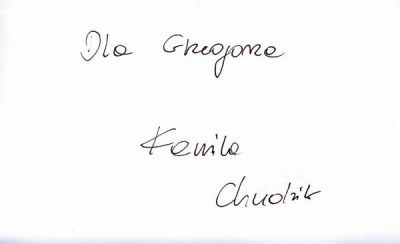 Dla Grzegorza
Kamila
Chudzik